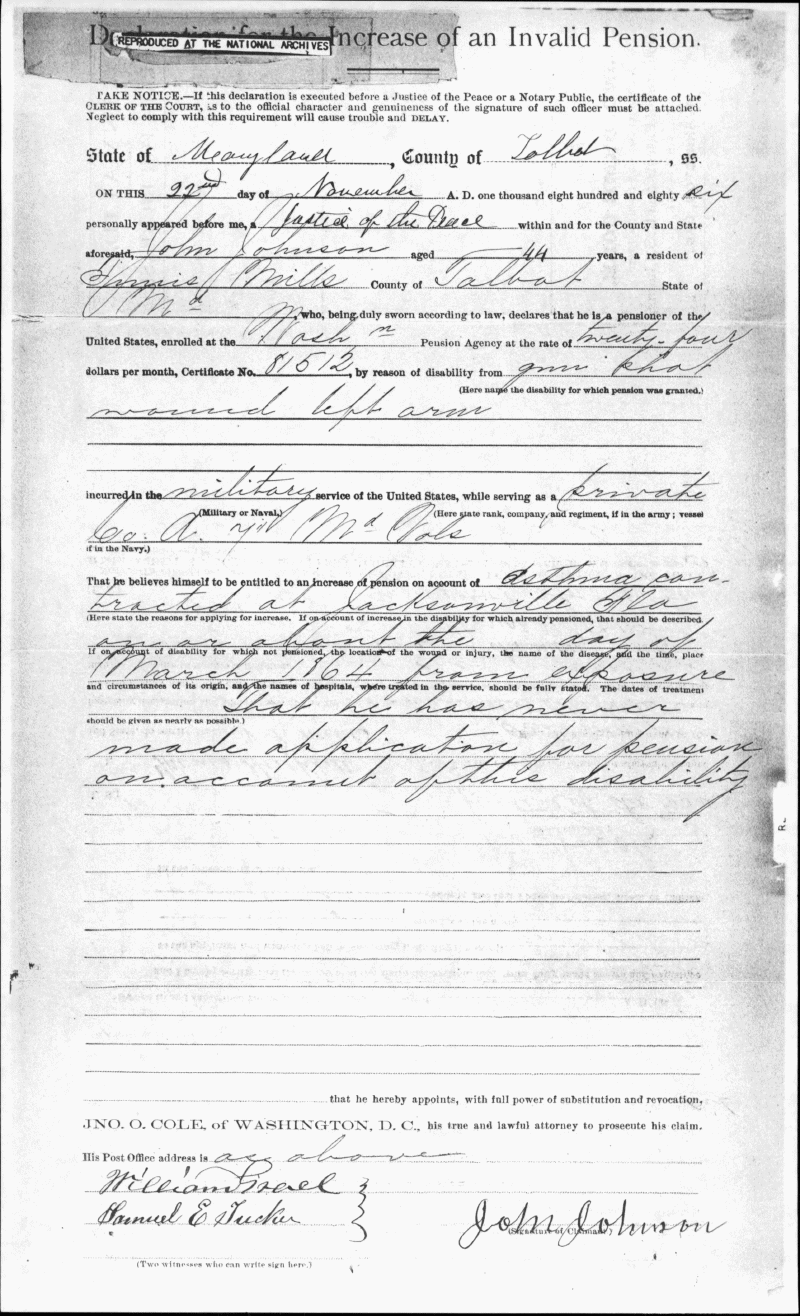 REPRODUCED AT THE NATIONAL ARCHIVES
Increase of an Invalid Pension.
TAKE NOTICE.—If this declaration is executed before a Justice of the Peace or a Notary Public, the certificate of the
CLERK OF THE COURT, as to the official character and genuineness of the signature of such officer must be attached.
Neglect to comply with this requirement will cause trouble and DELAY.
State of Maryland, County of Talbot, ss.
ON THIS 22nd day of November A. D. one thousand eight hundred and eighty six
personally appeared before me, a Justice of the Peace within and for the County and State
aforesaid, John Johnson aged 44 years, a resident of
Mills County of Talbot State of
Md, who, being duly sworn according to law, declares that he is a pensioner of the
United States, enrolled at the Washn Pension Agency at the rate of twenty-four
dollars per month, Certificate No. 81512, by reason of disability from gun shot
(Here name the disability for which pension was granted.)
wound left arm
incurred in the military service of the United States, while serving as a private
(Military or Naval.) (Here state rank, company, and regiment, if in the army; vessel
Co. A. 7th Md Vols
if in the Navy.)
That he believes himself to be entitled to an increase of pension on account of asthma con-
tracted at Jacksonville Fla
(Here state the reasons for applying for increase. If on account of increase in the disability for which already pensioned, that should be described
on or about the day of
If on account of disability for which not pensioned, the location of the wound or injury, the name of the disease, and the time, place
March 1864 from exposure
and circumstances of its origin, and the names of hospitals, where treated in the service, should be fully stated. The dates of treatment
That he has never
should be given as nearly as possible.)
made application for pension
on account of this disability
that he hereby appoints, with full power of substitution and revocation,
JNO. O. COLE, of WASHINGTON, D. C., his true and lawful attorney to prosecute his claim.
His Post Office address is as above
William Israel
Samuel E Tucker
John Johnson
(Signature of Claimant.)
(Two witnesses who can write sign here.)